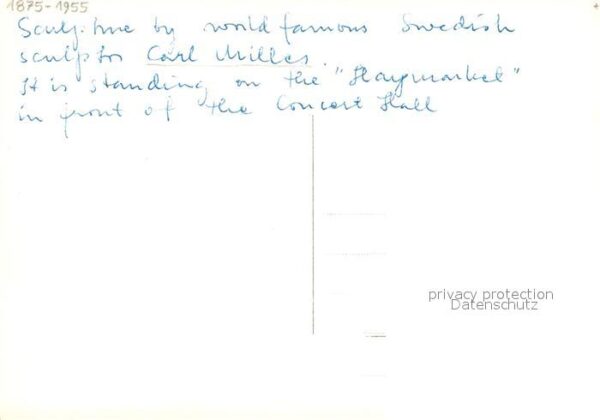 1875-1955
Sculpture by world famous Swedish
sculptor Carl Milles.
It is standing on the "Haymarket"
in front of the Concert Hall
privacy protection
Datenschutz